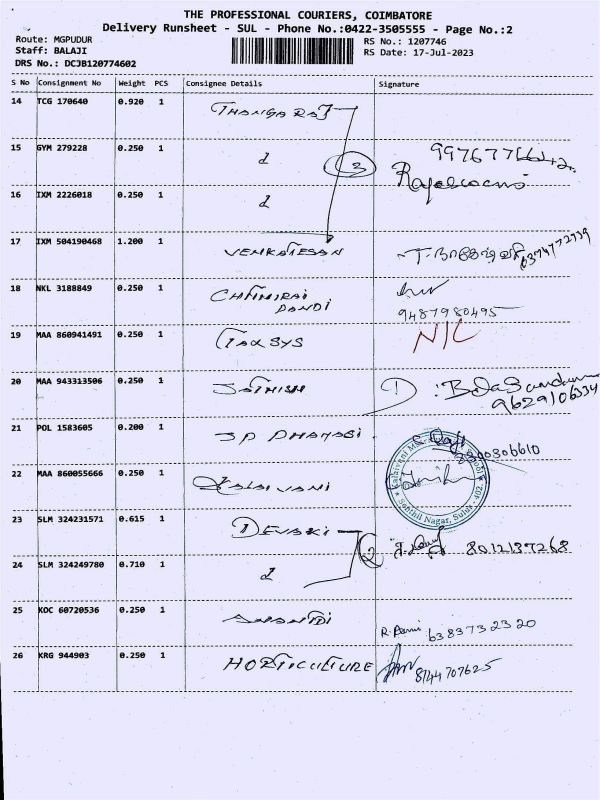 THE PROFESSIONAL COURIERS, COIMBATORE
Delivery Runsheet - SUL - Phone No.:0422-3505555 - Page No.:2
Route: MGPUDUR
Staff: BALAJI
DRS No.: DCJB120774602
RS No.: 1207746
RS Date: 17-Jul-2023
S No Consignment No Weight PCS Consignee Details Signature
14 TCG 170640 0.920 1 THANGARAJ
15 GYM 279228 0.250 1 d 3
16 IXM 2226018 0.250 1 d
17 IXM 504190468 1.200 1 VENKATESAN 6374772939
18 NKL 3188849 0.250 1 CHINNIRAJ PANDI 9487980495
19 MAA 860941491 0.250 1 TAXSYS N/C
20 MAA 943313506 0.250 1 SATHISH 9629106334
21 POL 1583605 0.200 1 JP DHAMABI
22 MAA 860055666 0.250 1 KALAIVANI
Senthil Nagar, Sulur - 402
23 SLM 324231571 0.615 1 DEVAKI 2 8012137268
24 SLM 324249780 0.710 1 d
25 KOC 60720536 0.250 1 R. Rani 6383732320
26 KRG 944903 0.250 1 HORTICULTURE 8144707625